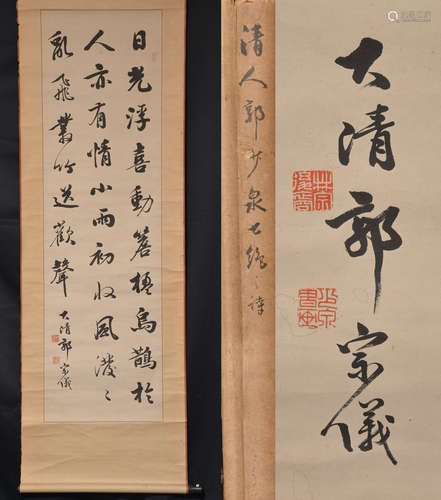 日光浮喜動簷楹烏鵲於
人亦有情小雨初收風潑潑
亂飛叢竹送歡聲
大清郭宗儀
清人郭少泉七絶之詩
大清郭宗儀